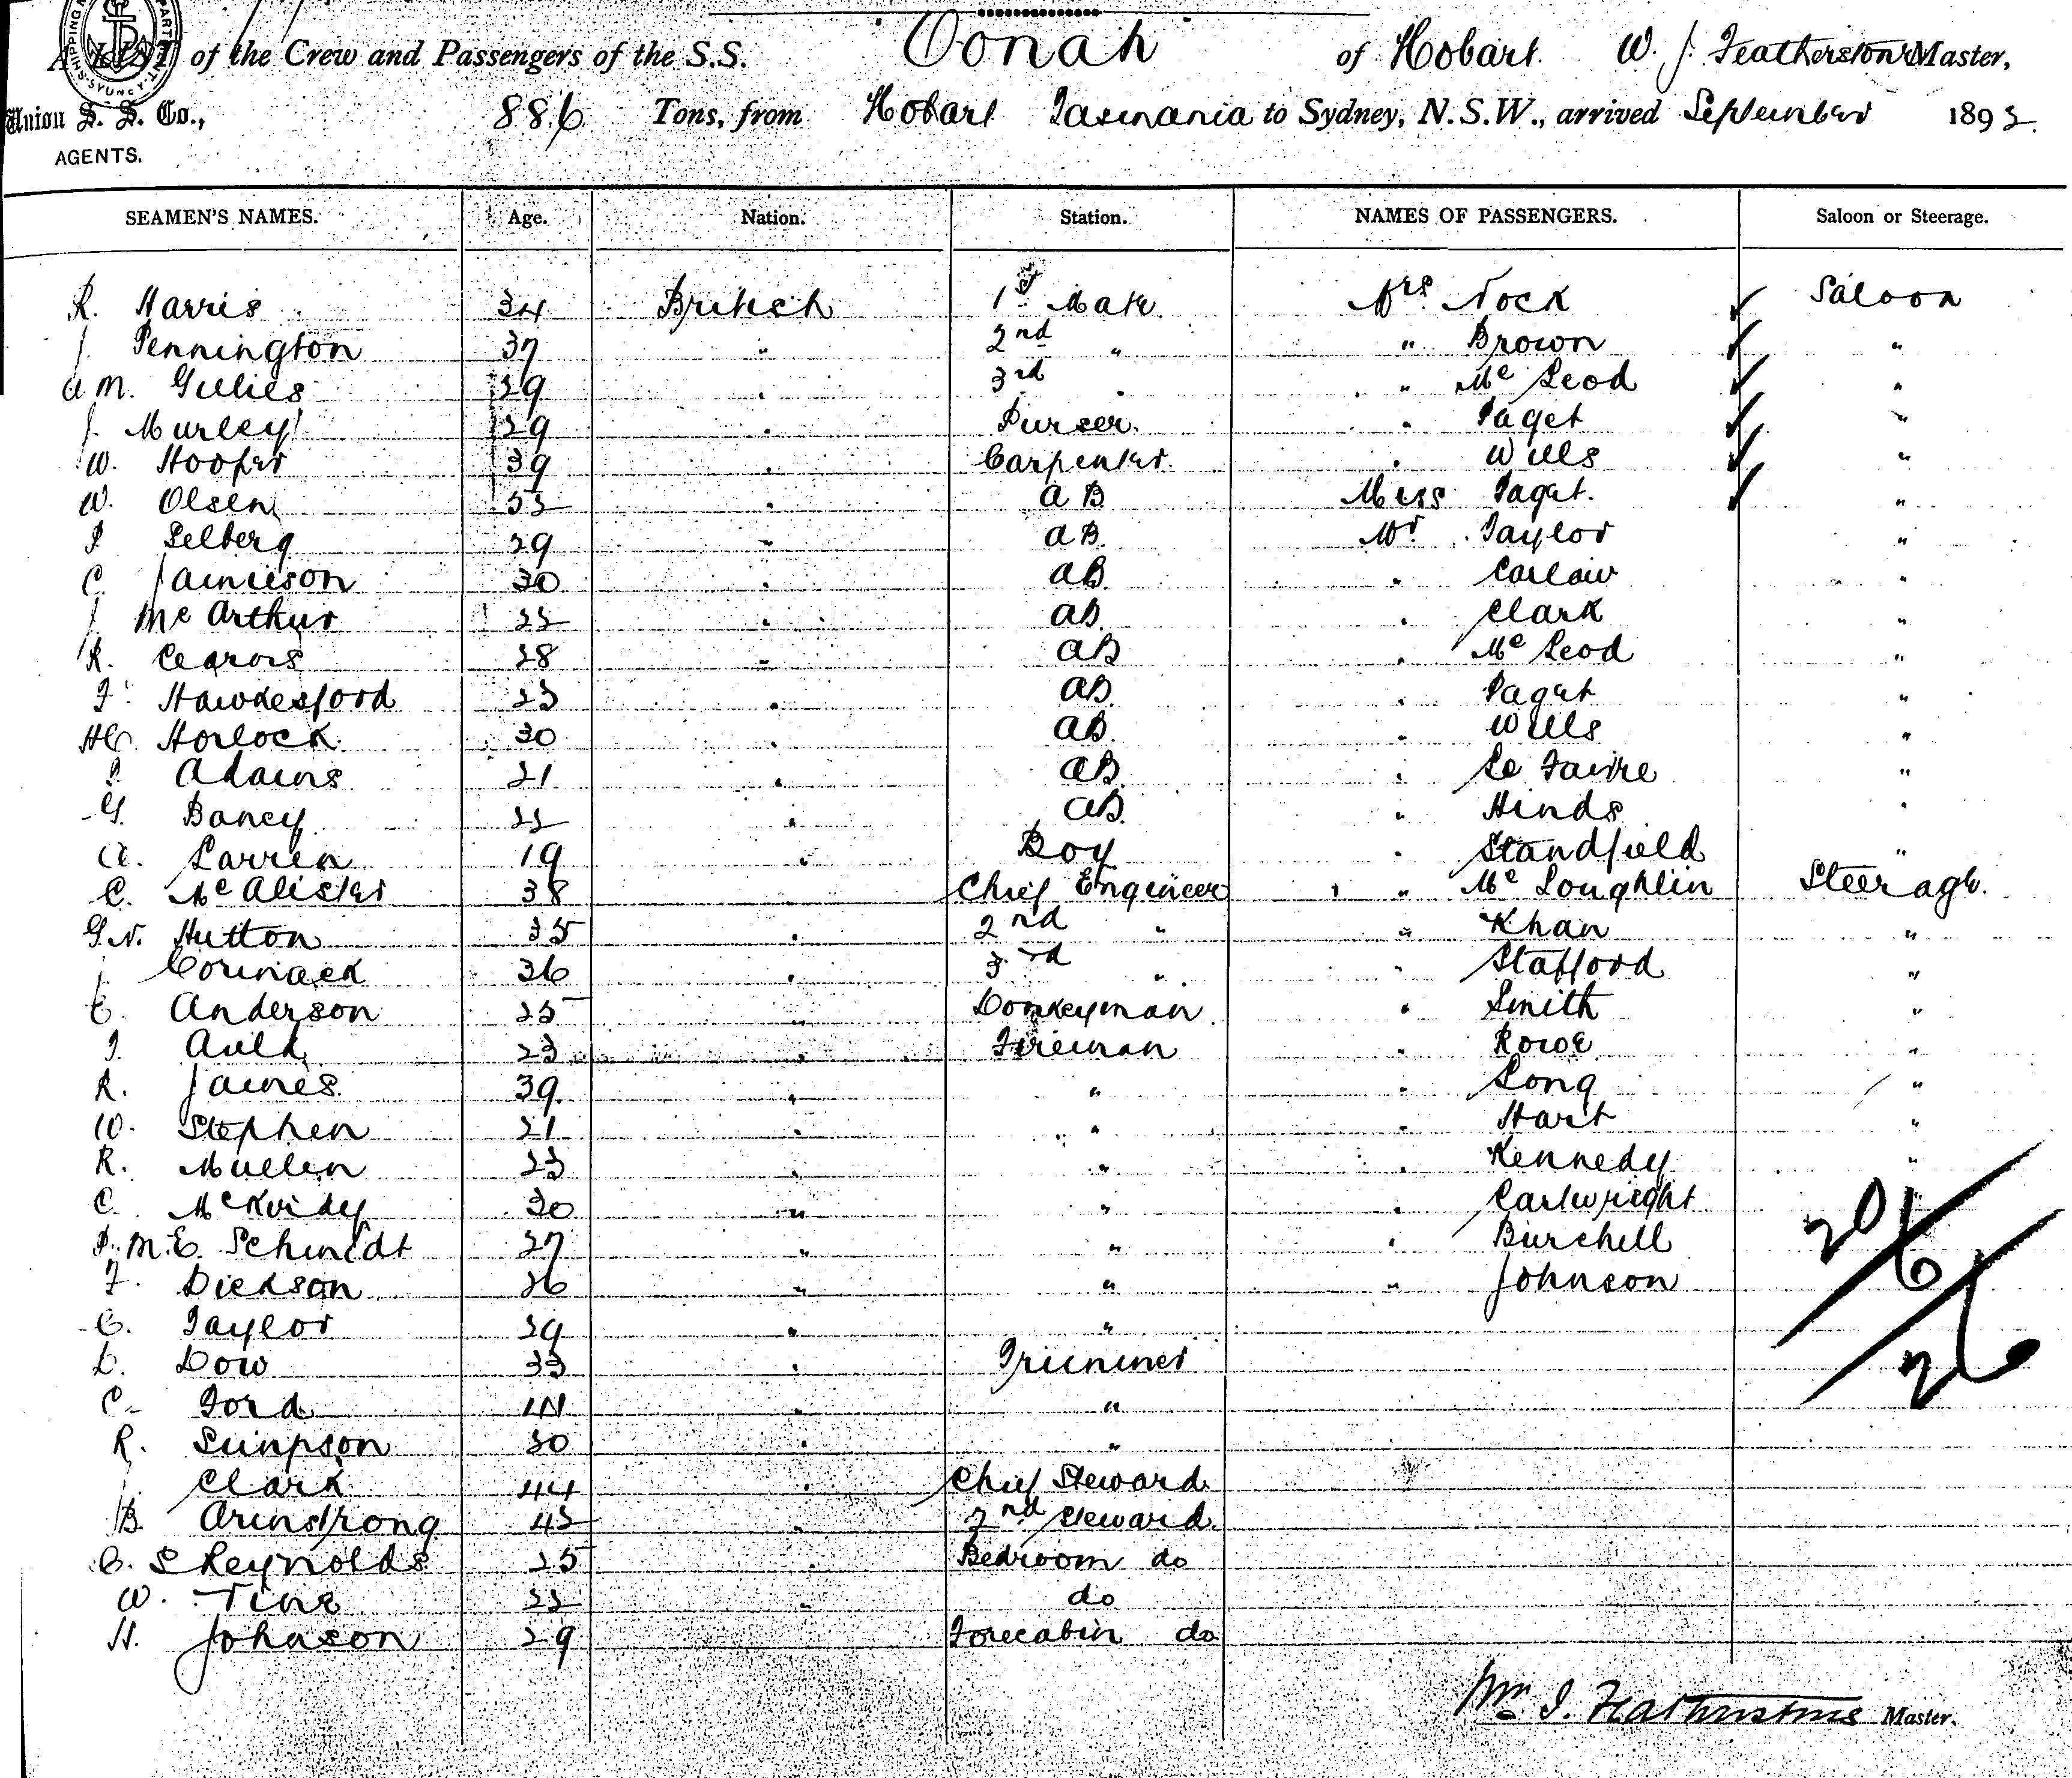 A LIST of the Crew and Passengers of the S.S. Oonah of Hobart W. J. Featherstone Master,
Union S. S. Co., 886 Tons, from Hobart Tasmania to Sydney, N.S.W., arrived September 1892
AGENTS.
SEAMEN'S NAMES. Age. Nation. Station. NAMES OF PASSENGERS. Saloon or Steerage.
R. Harris 34 British 1st Mate Mrs Nock ✓ Saloon
J. Pennington 37 " 2nd " " Brown ✓ "
A M. Gillies 29 " 3rd " " Mc Leod ✓ "
J. Murley 29 " Purser. " Paget ✓ "
W. Hooper 39 " Carpenter. " Wills ✓ "
W. Olsen " A B Miss Paget. ✓ "
P Selberg 29 " A B. Mr. Taylor "
C. Jamieson 30 " AB. " Carlaw "
J Mc Arthur 22 " AB. " Clark "
R. 28 " AB " Mc Leod "
F. Hawkesford 23 " AB. " Paget "
HC. Horlock. 30 " AB. " Wills "
Adams 21 " AB. " Le Faivre "
G. Baney 22 " AB. " Hinds "
A. Larren 19 " Boy " Standfield "
C. Mc Alister 38 " Chief Engineer " Mc Loughlin Steerage.
G.N. Hutton 35 " 2nd " " Khan "
J Cormack 36 " 3rd " " Stafford "
C. Anderson 25 " Donkeyman " Smith "
Auld 23 " Fireman " Rowe "
R. James 39. " " " Long "
W. Stephen 21 " " " Hart "
R. Mullen 23 " " " Kennedy "
C. 30 " " " Cartwright "
P. M. E. Schmidt 27 " " " Burchell
F. Dickson 26 " " " Johnson
C. Taylor 29 " "
D. Dow 33 " Trimmer
C. Ford " "
R. Simpson 30 " "
J. Clark 44 " Chief Steward
B Armstrong 42 " 2nd Steward.
C. S Reynolds 25 " Bedroom do
W. Tine 22 " do
H. Johnson 29 Forecabin do
20/6/26
Wm J. Featherstone Master.